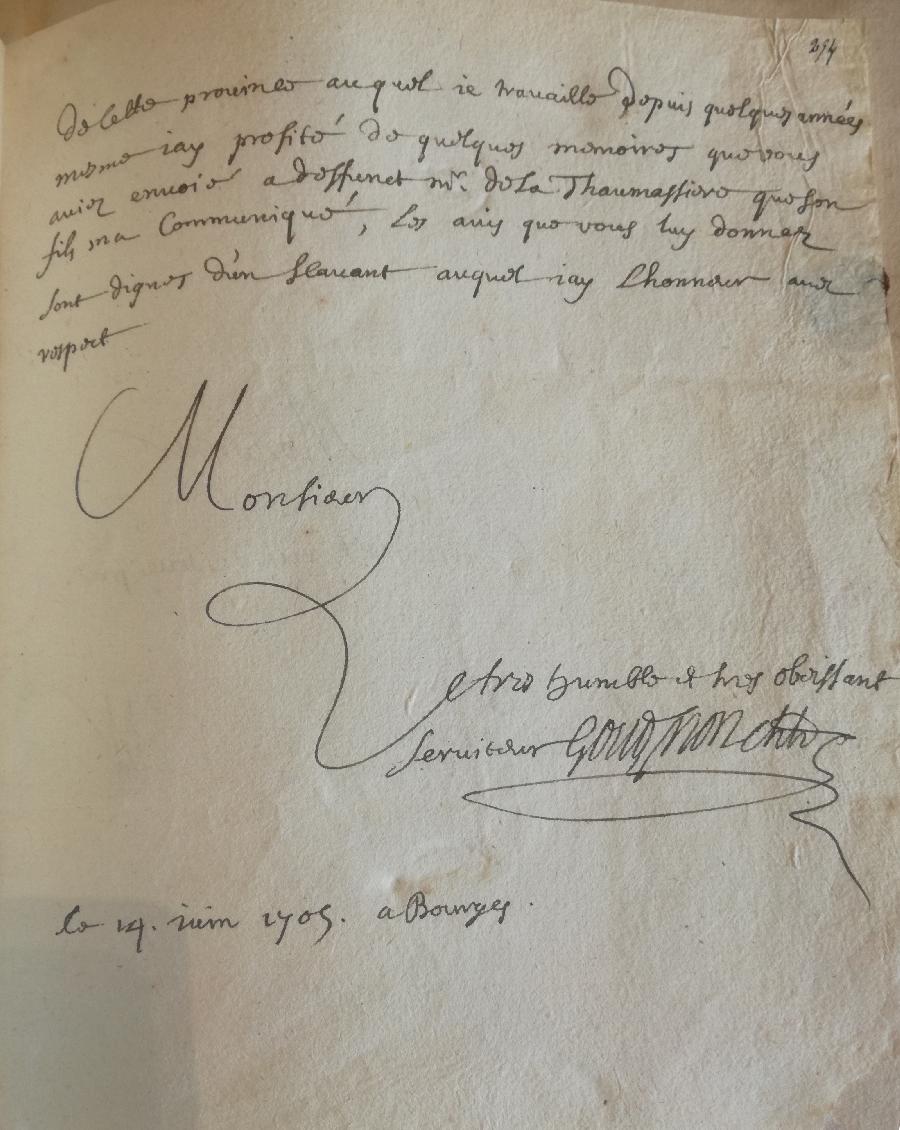 294
de cette province auquel ie travaille depuis quelques années
mesme iay profité de quelques memoires que vous
aviez envoié a deffunct mr. de la Thaumassiere que son
fils ma Communiqué, Les avis que vous luy donnez
sont dignes d'un sçavant auquel iay Lhonneur avec
respect
Monsieur
tres humble et tres obeissant
serviteur Gougnon
le 14. iuin 1705. a Bourges.